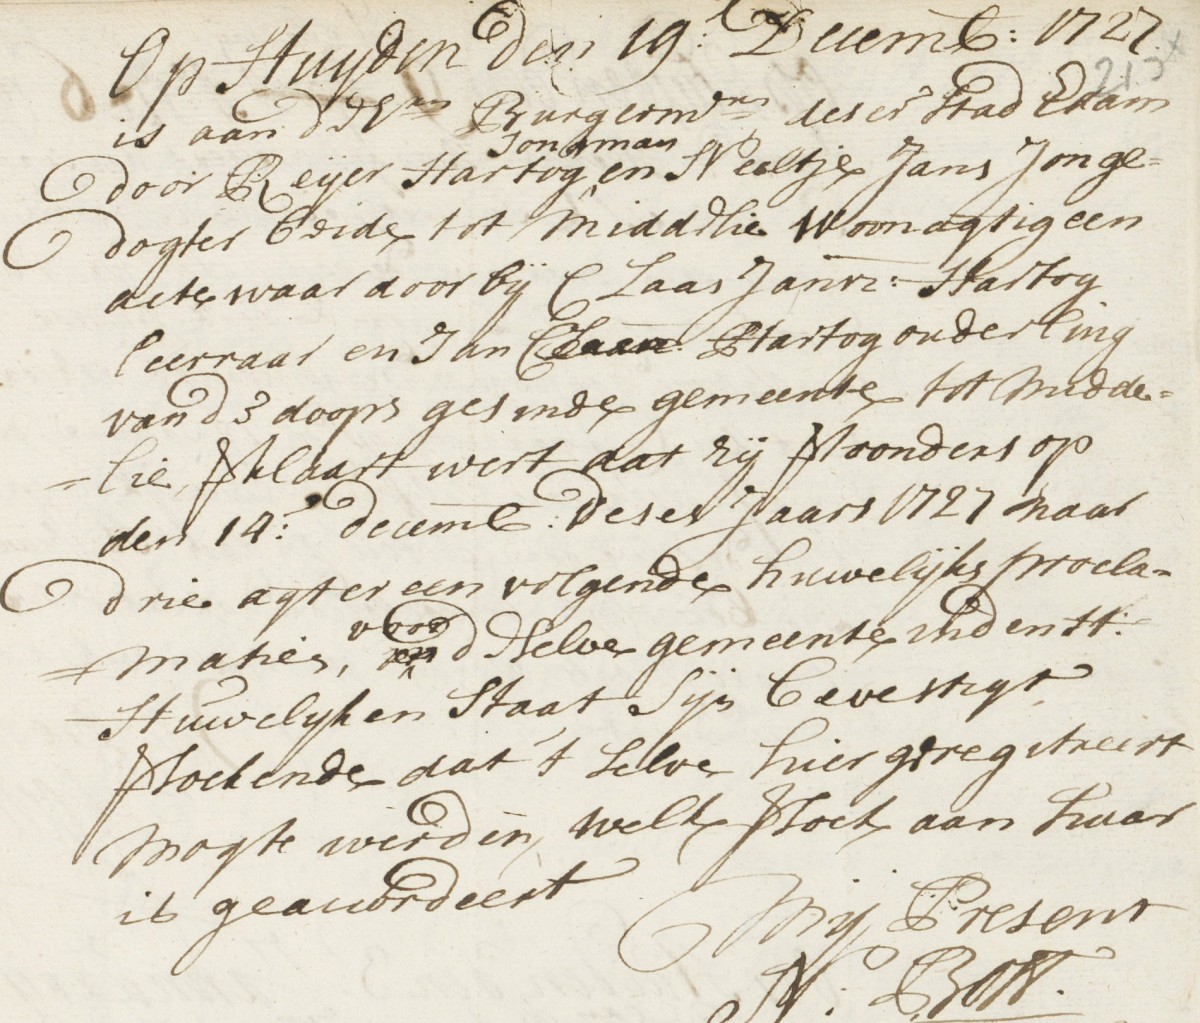 Op Huyden den 19.e Decemb: 1727
213
is aan d Hrn Burgermrn deser Stad Edam
Jongman
door Reijer Hartog, en Neeltje Jans Jonge=
dogter beide tot Middelie Woonagtig een
acte waar door bij Claas Jansz: Hartog
leerraar en Jan Claasz Hartog ouderling
van d doops gesinde gemeente tot Midde=
=lie, verklaart wert dat zij verthoonders op
den 14.e decemb: deses Jaars 1727 naar
drie agter een volgende huwelijks procla=
voor
=matien, en d selve gemeente in den Ht:
Huwelijken Staat Sijn bevestigt.
versoekende dat 't selve hier geregistreert
mogte werden, welk versoek aan haar
is geaccordeert
Mij Present
N: Bott.